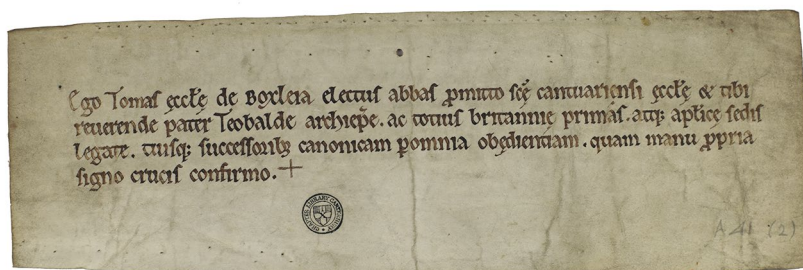 Ego Tomas ęccłę de Boxleia electus abbas ꝓmitto scę cantuariensi ęccłę & tibi
reuerende pater Teobalde archiepe. ac totius britannie primas. atq; aplice sedis
legate. tuisq; successorib; canonicam ꝑ omnia obędientiam. quam manu ꝓpria
signo crucis confirmo. +
A 41 (2)